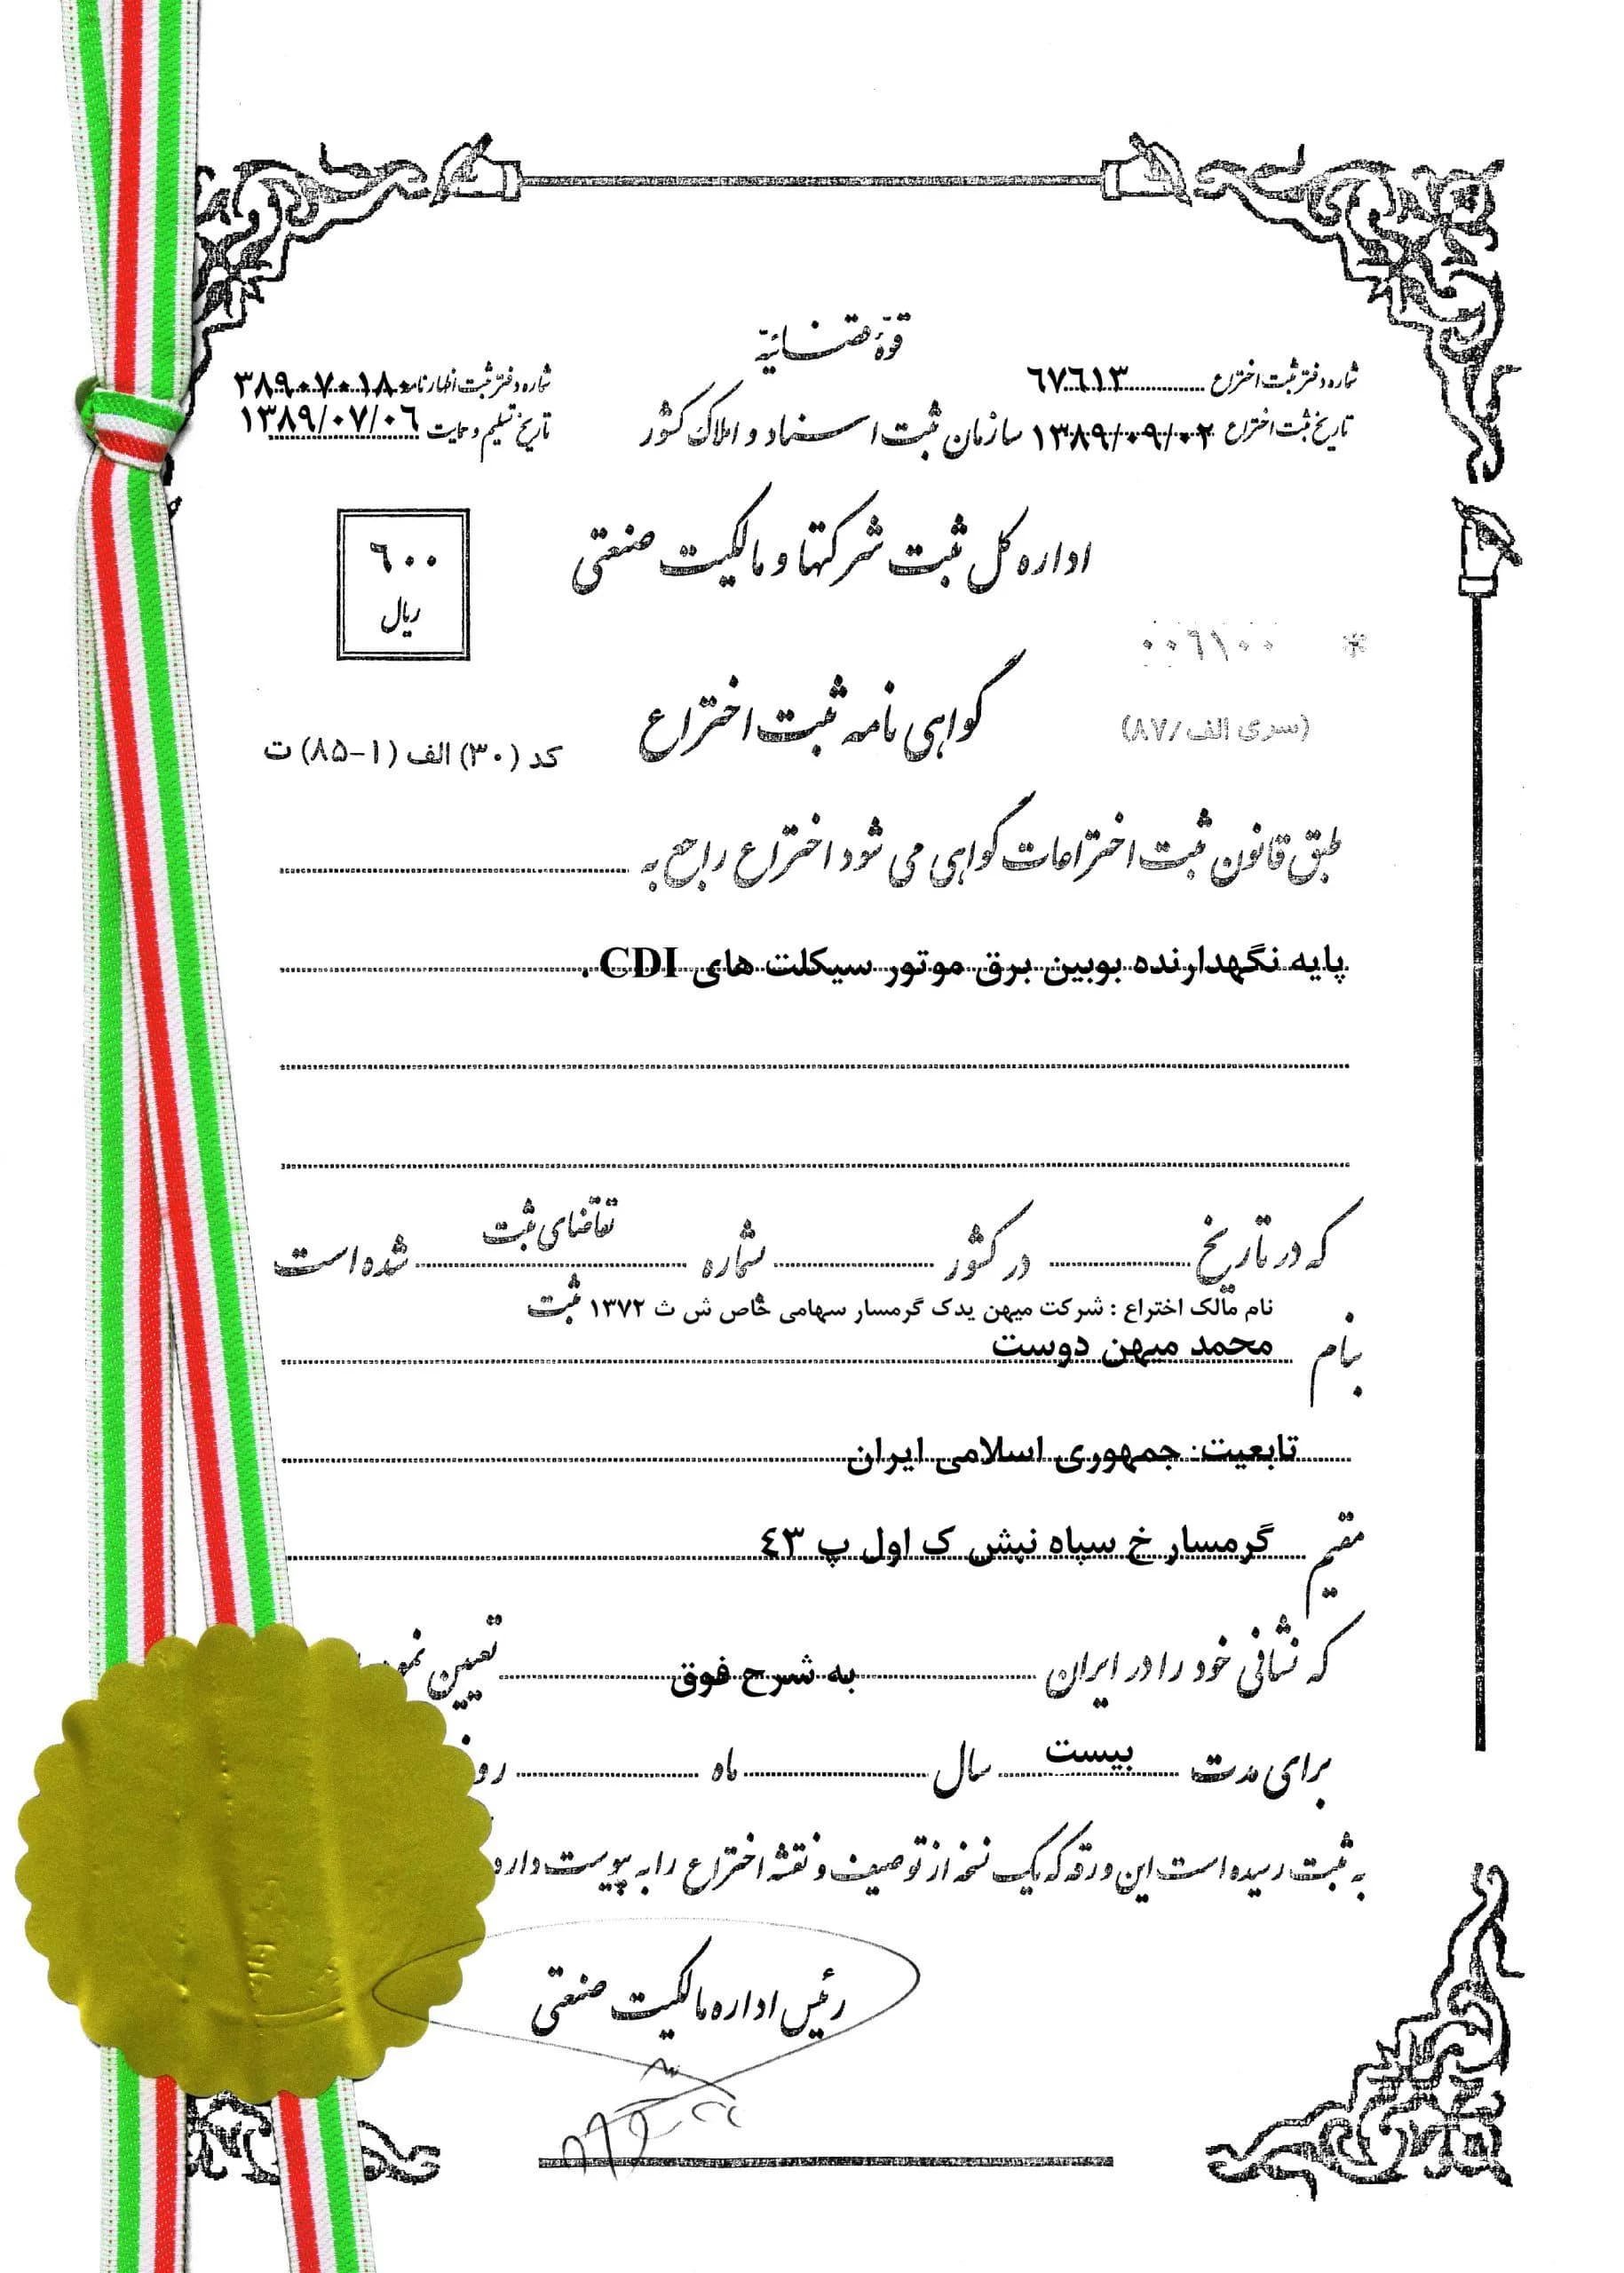 قوهٔ قضائیه
شماره دفتر ثبت اختراع ٦٧٦١٣
شماره دفتر ثبت اظهارنامه ٣٨٩٠٧٠١٨٠
تاریخ ثبت اختراع ١٣٨٩/٠٩/٠٢
سازمان ثبت اسناد و املاک کشور
تاریخ تسلیم و حمایت ١٣٨٩/٠٧/٠٦
اداره کل ثبت شرکتها و مالکیت صنعتی
٦٠٠
ریال
(سری الف/۸۷)
گواهی نامه ثبت اختراع
کد (۳۰) الف (۱-۸۵) ت
طبق قانون ثبت اختراعات گواهی می شود اختراع راجع به
پایه نگهدارنده بوبین برق موتور سیکلت های CDI .
که در تاریخ در کشور بشماره تقاضای ثبت شده است
نام مالک اختراع : شرکت میهن یدک گرمسار سهامی خاص ش ث ۱۳۷۲ ثبت
بنام محمد میهن دوست
تابعیت: جمهوری اسلامی ایران
مقیم گرمسار خ سپاه نبش ک اول پ ٤٣
که نشانی خود را در ایران به شرح فوق تعیین
برای مدت بیست سال ماه
به ثبت رسیده است این ورقه که یک نسخه از توصیف و نقشه اختراع را به پیوست
رئیس اداره مالکیت صنعتی